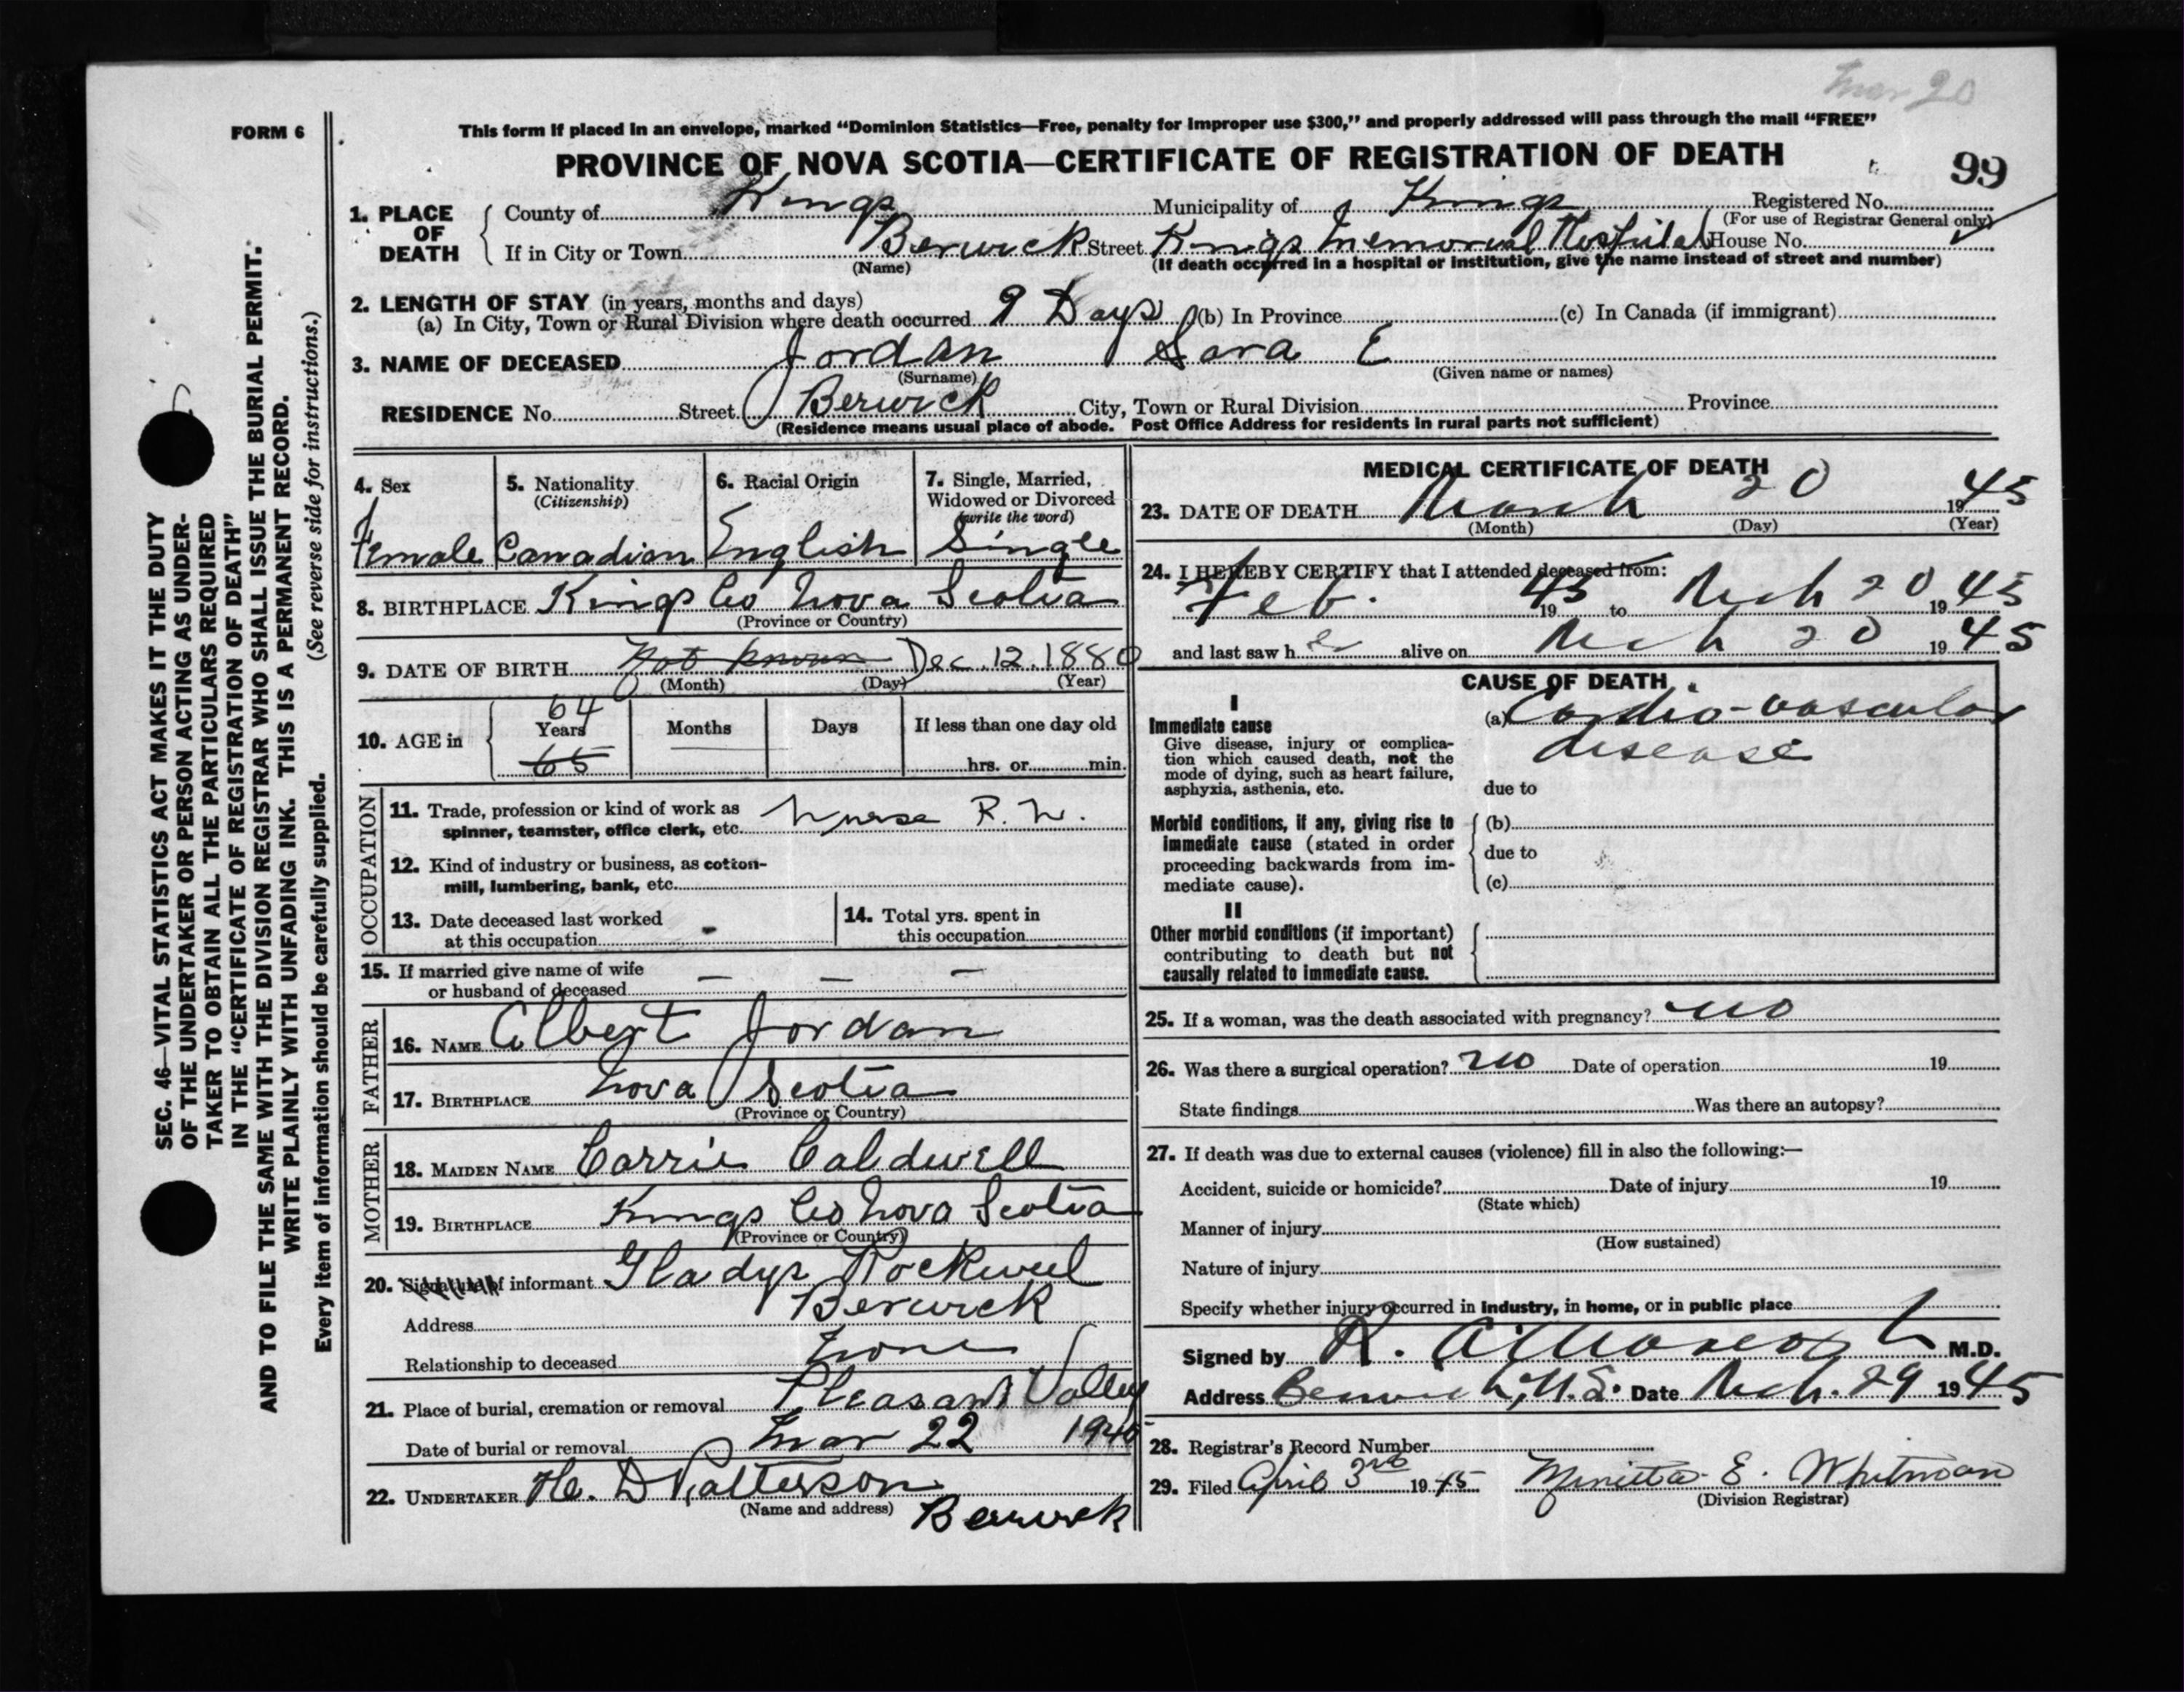 Mar 20
FORM 6
This form if placed in an envelope, marked “Dominion Statistics—Free, penalty for improper use $300,” and properly addressed will pass through the mail “FREE”
PROVINCE OF NOVA SCOTIA—CERTIFICATE OF REGISTRATION OF DEATH
99
1. PLACE OF DEATH
County of Kings Municipality of Kings Registered No.
(For use of Registrar General only)
If in City or Town Berwick Street Kings Memorial Hospital House No.
(Name) (If death occurred in a hospital or institution, give the name instead of street and number)
2. LENGTH OF STAY (in years, months and days)
(a) In City, Town or Rural Division where death occurred 9 Days (b) In Province (c) In Canada (if immigrant)
3. NAME OF DECEASED Jordan Sara E
(Surname) (Given name or names)
RESIDENCE No. Street Berwick City, Town or Rural Division Province
(Residence means usual place of abode. Post Office Address for residents in rural parts not sufficient)
4. Sex
Female
5. Nationality
(Citizenship)
Canadian
6. Racial Origin
English
7. Single, Married,
Widowed or Divorced
(write the word)
Single
8. BIRTHPLACE Kings Co Nova Scotia
(Province or Country)
9. DATE OF BIRTH Not known Dec. 12. 1880
(Month) (Day) (Year)
10. AGE in
64
Years
65
Months
Days
If less than one day old
hrs. or min.
OCCUPATION
11. Trade, profession or kind of work as
spinner, teamster, office clerk, etc. Nurse R. N.
12. Kind of industry or business, as cotton-
mill, lumbering, bank, etc.
13. Date deceased last worked
at this occupation -
14. Total yrs. spent in
this occupation
15. If married give name of wife
or husband of deceased — — —
FATHER
16. NAME Albert Jordan
17. BIRTHPLACE Nova Scotia
(Province or Country)
MOTHER
18. MAIDEN NAME Carrie Caldwell
19. BIRTHPLACE Kings Co Nova Scotia
(Province or Country)
20. Signature of informant Gladys Rockwell
Address Berwick
Relationship to deceased None
21. Place of burial, cremation or removal Pleasant Valley
Date of burial or removal Mar 22 1945
22. UNDERTAKER H. D Patterson
(Name and address) Berwick
MEDICAL CERTIFICATE OF DEATH
23. DATE OF DEATH March 20 1945
(Month) (Day) (Year)
24. I HEREBY CERTIFY that I attended deceased from:
Feb. 1945 to Mch 20 1945
and last saw her alive on Mch 20 1945
CAUSE OF DEATH
I
Immediate cause
Give disease, injury or complica-
tion which caused death, not the
mode of dying, such as heart failure,
asphyxia, asthenia, etc.
(a) Cardio-vascular
disease
due to
Morbid conditions, if any, giving rise to
immediate cause (stated in order
proceeding backwards from im-
mediate cause).
(b)
due to
(c)
II
Other morbid conditions (if important)
contributing to death but not
causally related to immediate cause.
25. If a woman, was the death associated with pregnancy? no
26. Was there a surgical operation? no Date of operation 19
State findings Was there an autopsy?
27. If death was due to external causes (violence) fill in also the following:—
Accident, suicide or homicide? Date of injury 19
(State which)
Manner of injury
(How sustained)
Nature of injury
Specify whether injury occurred in industry, in home, or in public place
Signed by R. M.D.
Address Berwick, N.S. Date Mch. 29 1945
28. Registrar's Record Number
29. Filed April 3rd 1945 E. Whitman
(Division Registrar)
SEC. 46—VITAL STATISTICS ACT MAKES IT THE DUTY
OF THE UNDERTAKER OR PERSON ACTING AS UNDER-
TAKER TO OBTAIN ALL THE PARTICULARS REQUIRED
IN THE “CERTIFICATE OF REGISTRATION OF DEATH”
AND TO FILE THE SAME WITH THE DIVISION REGISTRAR WHO SHALL ISSUE THE BURIAL PERMIT.
WRITE PLAINLY WITH UNFADING INK. THIS IS A PERMANENT RECORD.
Every item of information should be carefully supplied. (See reverse side for instructions.)